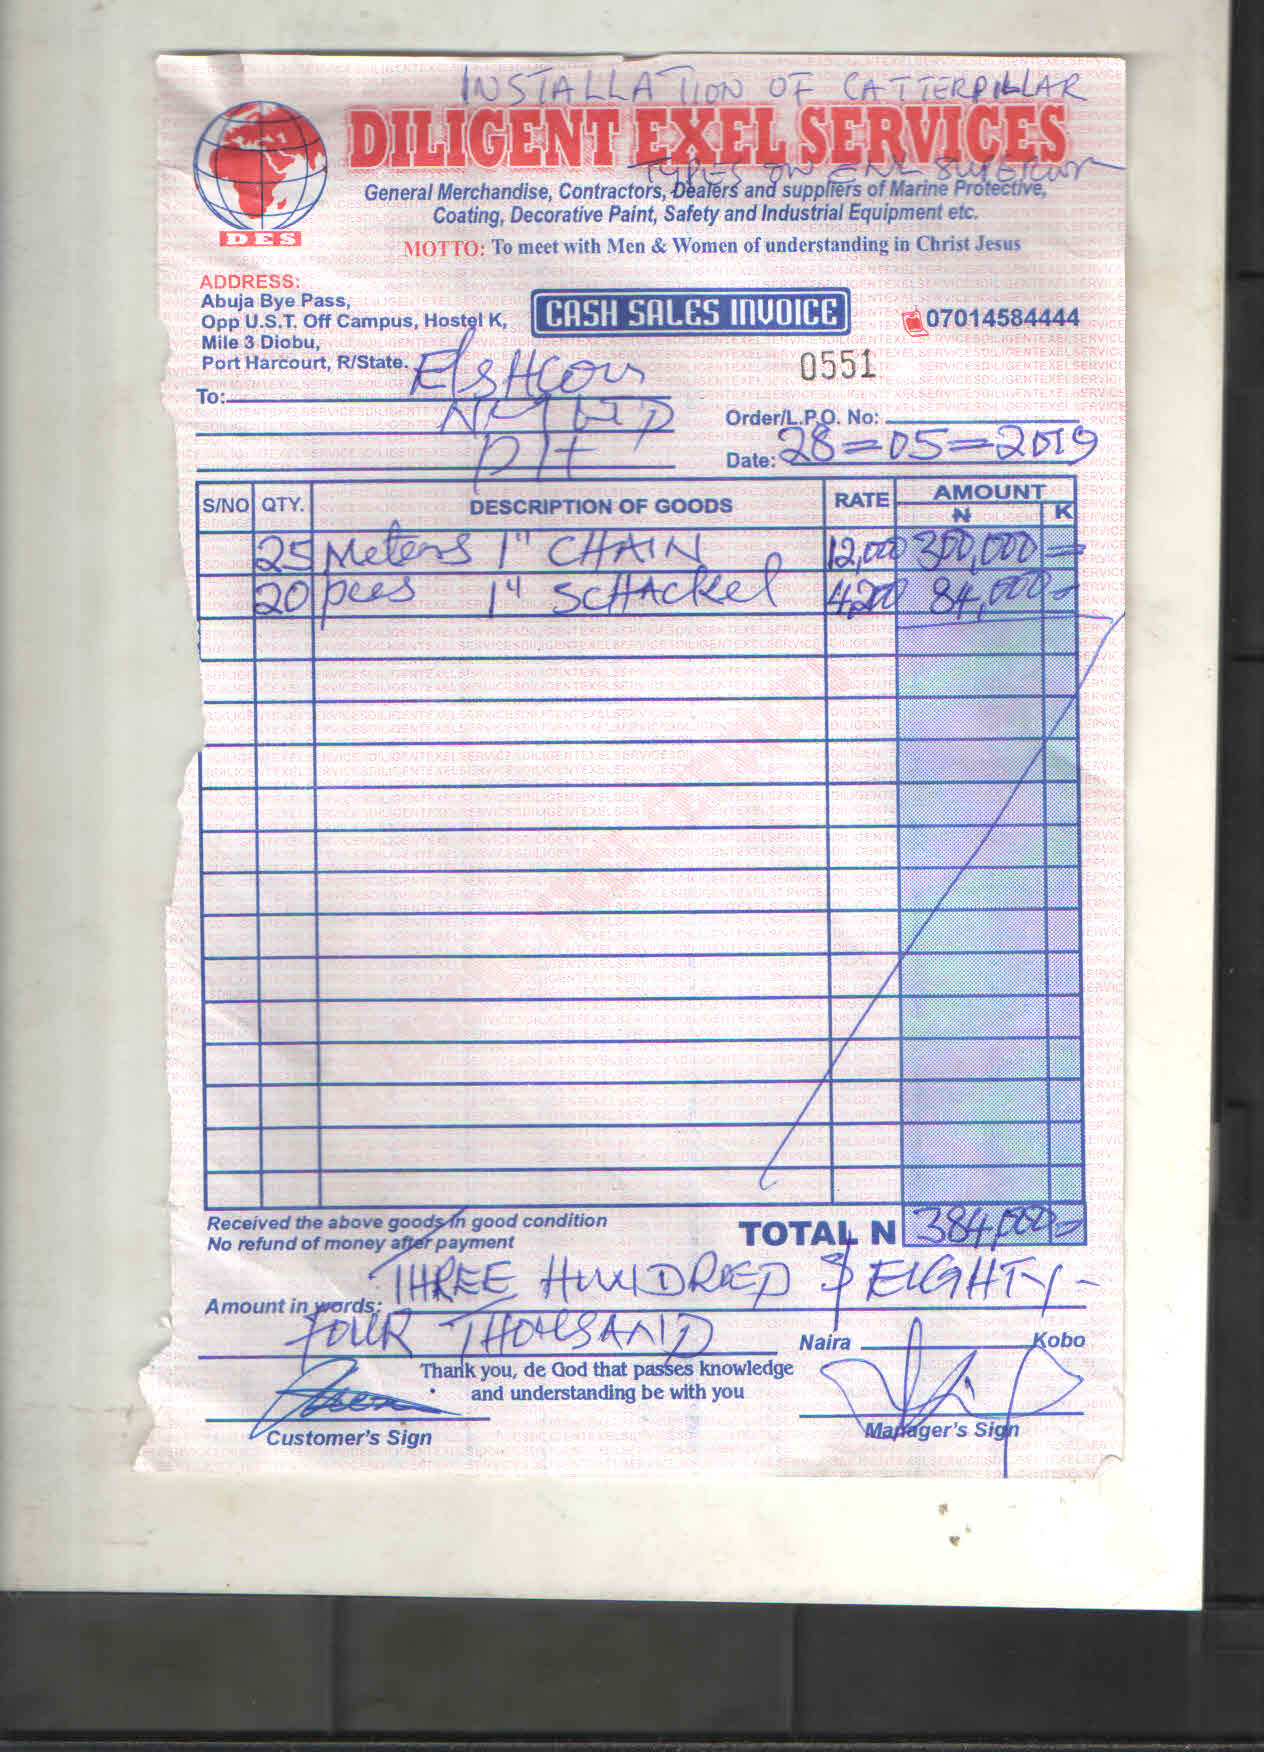 INSTALLATION OF CATTERPILLAR
DILIGENT EXEL SERVICES
TYPES ON ENL
General Merchandise, Contractors, Dealers and suppliers of Marine Protective,
Coating, Decorative Paint, Safety and Industrial Equipment etc.
DES
MOTTO: To meet with Men & Women of understanding in Christ Jesus
ADDRESS:
Abuja Bye Pass,
Opp U.S.T. Off Campus, Hostel K,
Mile 3 Diobu,
Port Harcourt, R/State.
CASH SALES INVOICE
07014584444
0551
To: ElsHcon
P/H
Order/L.P.O. No:
Date: 28=05=2019
S/NO QTY. DESCRIPTION OF GOODS RATE AMOUNT
N K
25 Meters 1" CHAIN 12,000 300,000 =
20 pces 1" SCHACKel 4,200 84,000 =
Received the above goods in good condition
No refund of money after payment
TOTAL N 384,000 =
Amount in words: THREE HUNDRED & EIGHTY-
FOUR THOUSAND Naira Kobo
Thank you, de God that passes knowledge
and understanding be with you
Customer's Sign
Manager's Sign